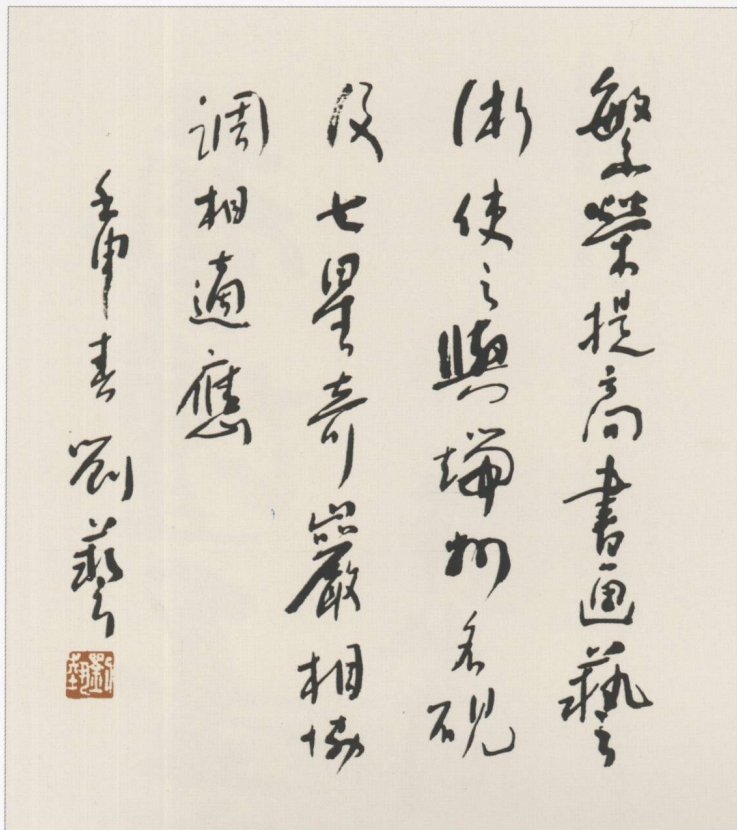 繁榮提高書画藝
術使之與端州名硯
及七星奇巖相協
調相適應
壬申春 劉藝
劉藝